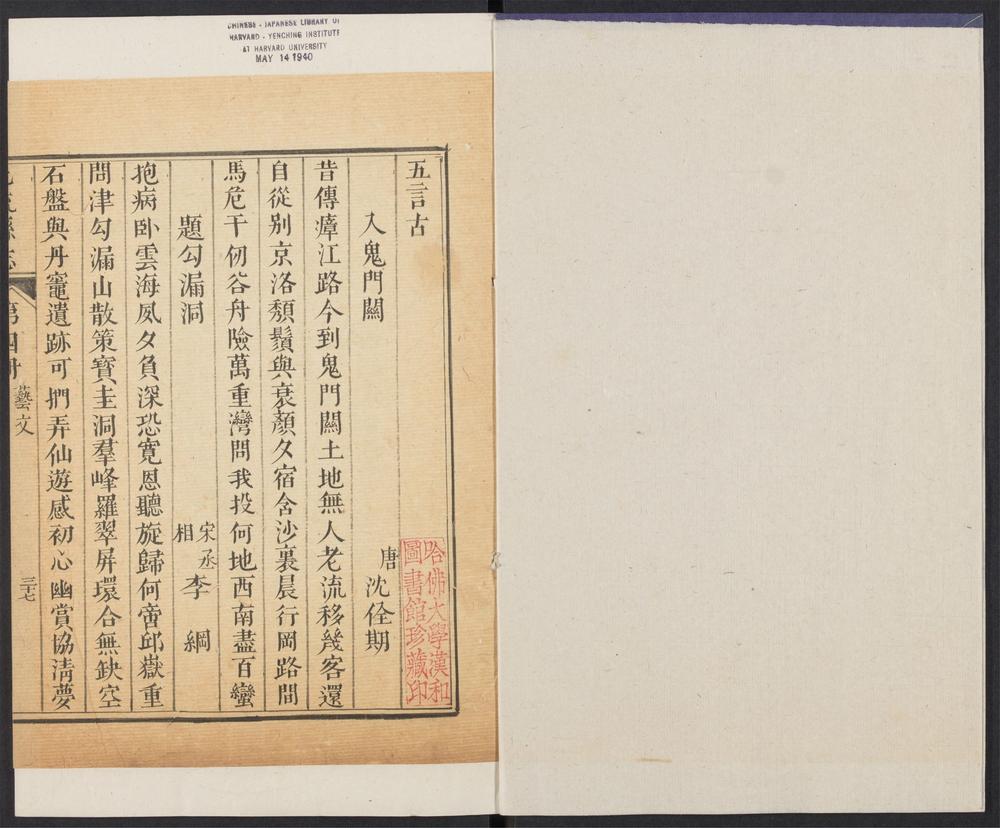 CHINESE - JAPANESE LIBRARY OF
HARVARD - YENCHING INSTITUTE
AT HARVARD UNIVERSITY
MAY 14 1940
哈佛大學漢和
圖書館珍藏印
五言古
入鬼門關
唐沈佺期
昔傳瘴江路今到鬼門關土地無人老流移幾客還
自從別京洛頽鬚與衰顏夕宿含沙裏晨行岡路間
馬危千仞谷舟險萬重灣問我投何地西南盡百蠻
題勾漏洞
宋丞相李綱
抱病卧雲海夙夕負深恐寛恩聽旋歸何啻邱嶽重
問津勾漏山散策寳圭洞羣峰羅翠屏環合無缺空
石盤與丹竈遺跡可捫弄仙遊感初心幽賞協淸夢
縣志
第四册
藝文
三十七